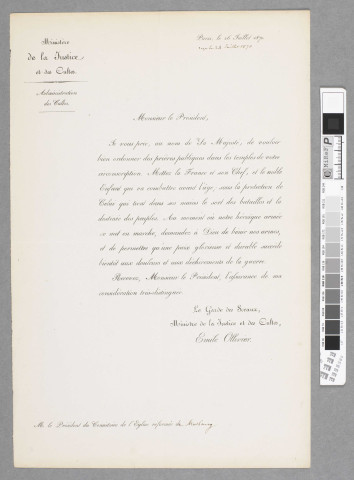 Ministère
de la Justice
et des Cultes.
Administration
des Cultes.
Paris, le 26 Juillet 1870
Monsieur le Président,
Je vous prie, au nom de Sa Majesté, de vouloir
bien ordonner des prières publiques dans les temples de votre
circonscription. Mettez la France et son Chef, et le noble
Enfant qui va combattre avant l'âge, sous la protection de
Celui qui tient dans ses mains le sort des batailles et la
destinée des peuples. Au moment où notre héroïque armée
se met en marche, demandez à Dieu de bénir nos armes,
et de permettre qu'une paix glorieuse et durable succède
bientôt aux douleurs et aux déchirements de la guerre.
Recevez, Monsieur le Président, l'assurance de ma
considération très-distinguée.
Le Garde des Sceaux,
Ministre de la Justice et des Cultes,
Emile Ollivier.
Mr. le Président du Consistoire de l'Eglise réformée de Strasbourg